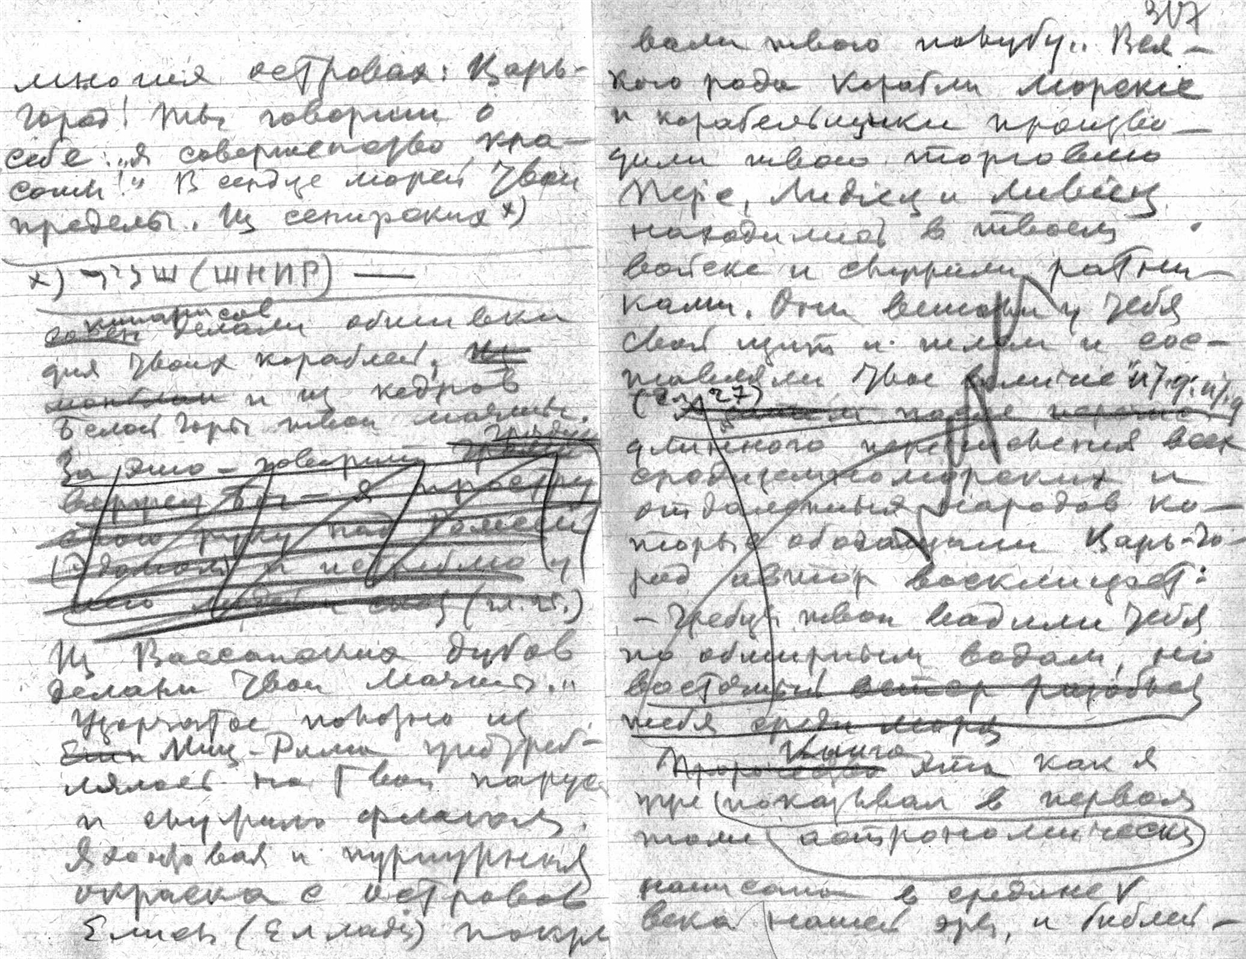 многия островах: Царь-
город! ты говоришь о
себе: „я совершенство кра-
соты!" В сердце морей твои
пределы. Из сенирских х)
х) (ШНИР) —
кипарисов
делали обшивки
для твоих кораблей,
и из кедров
Белой горы твои мачты.
За это - говорит
я простру
свою руку над
и истреблю у
него людей и скот (гл. 25.)
Из Вассанских дубов
делали твои мачты."
Узорчатое полотно из
Миц-Рима употреб-
лялось на твои паруса
и служило флагом.
Яхонтовая и пурпурныя
окраска с островов
Елисы (Еллады) покры
317
вали твою палубу.. Вся-
кого рода корабли морские
и корабельщики произво-
дили твою торговлю
Перс, Лидиец и Ливиец
находились в твоем
войске и служили ратни-
ками. Они вешали у тебя
свой щит и шлем и сос-
тавляли твое величие" и т. д. и т. д
(гл. 27)
после
длинного перечисления всех
средиземноморских и
отдаленных народов ко-
торые обогащали Царь-го-
род автор восклицает:
- Гребцы твои вводили тебя
по обширным водам, но
восточный ветер разобьет
тебя среди моря
Книга
Пророчество эта как я
уже показывал в первом
томе астрономически
написана в средине V
века нашей эры, и библей-